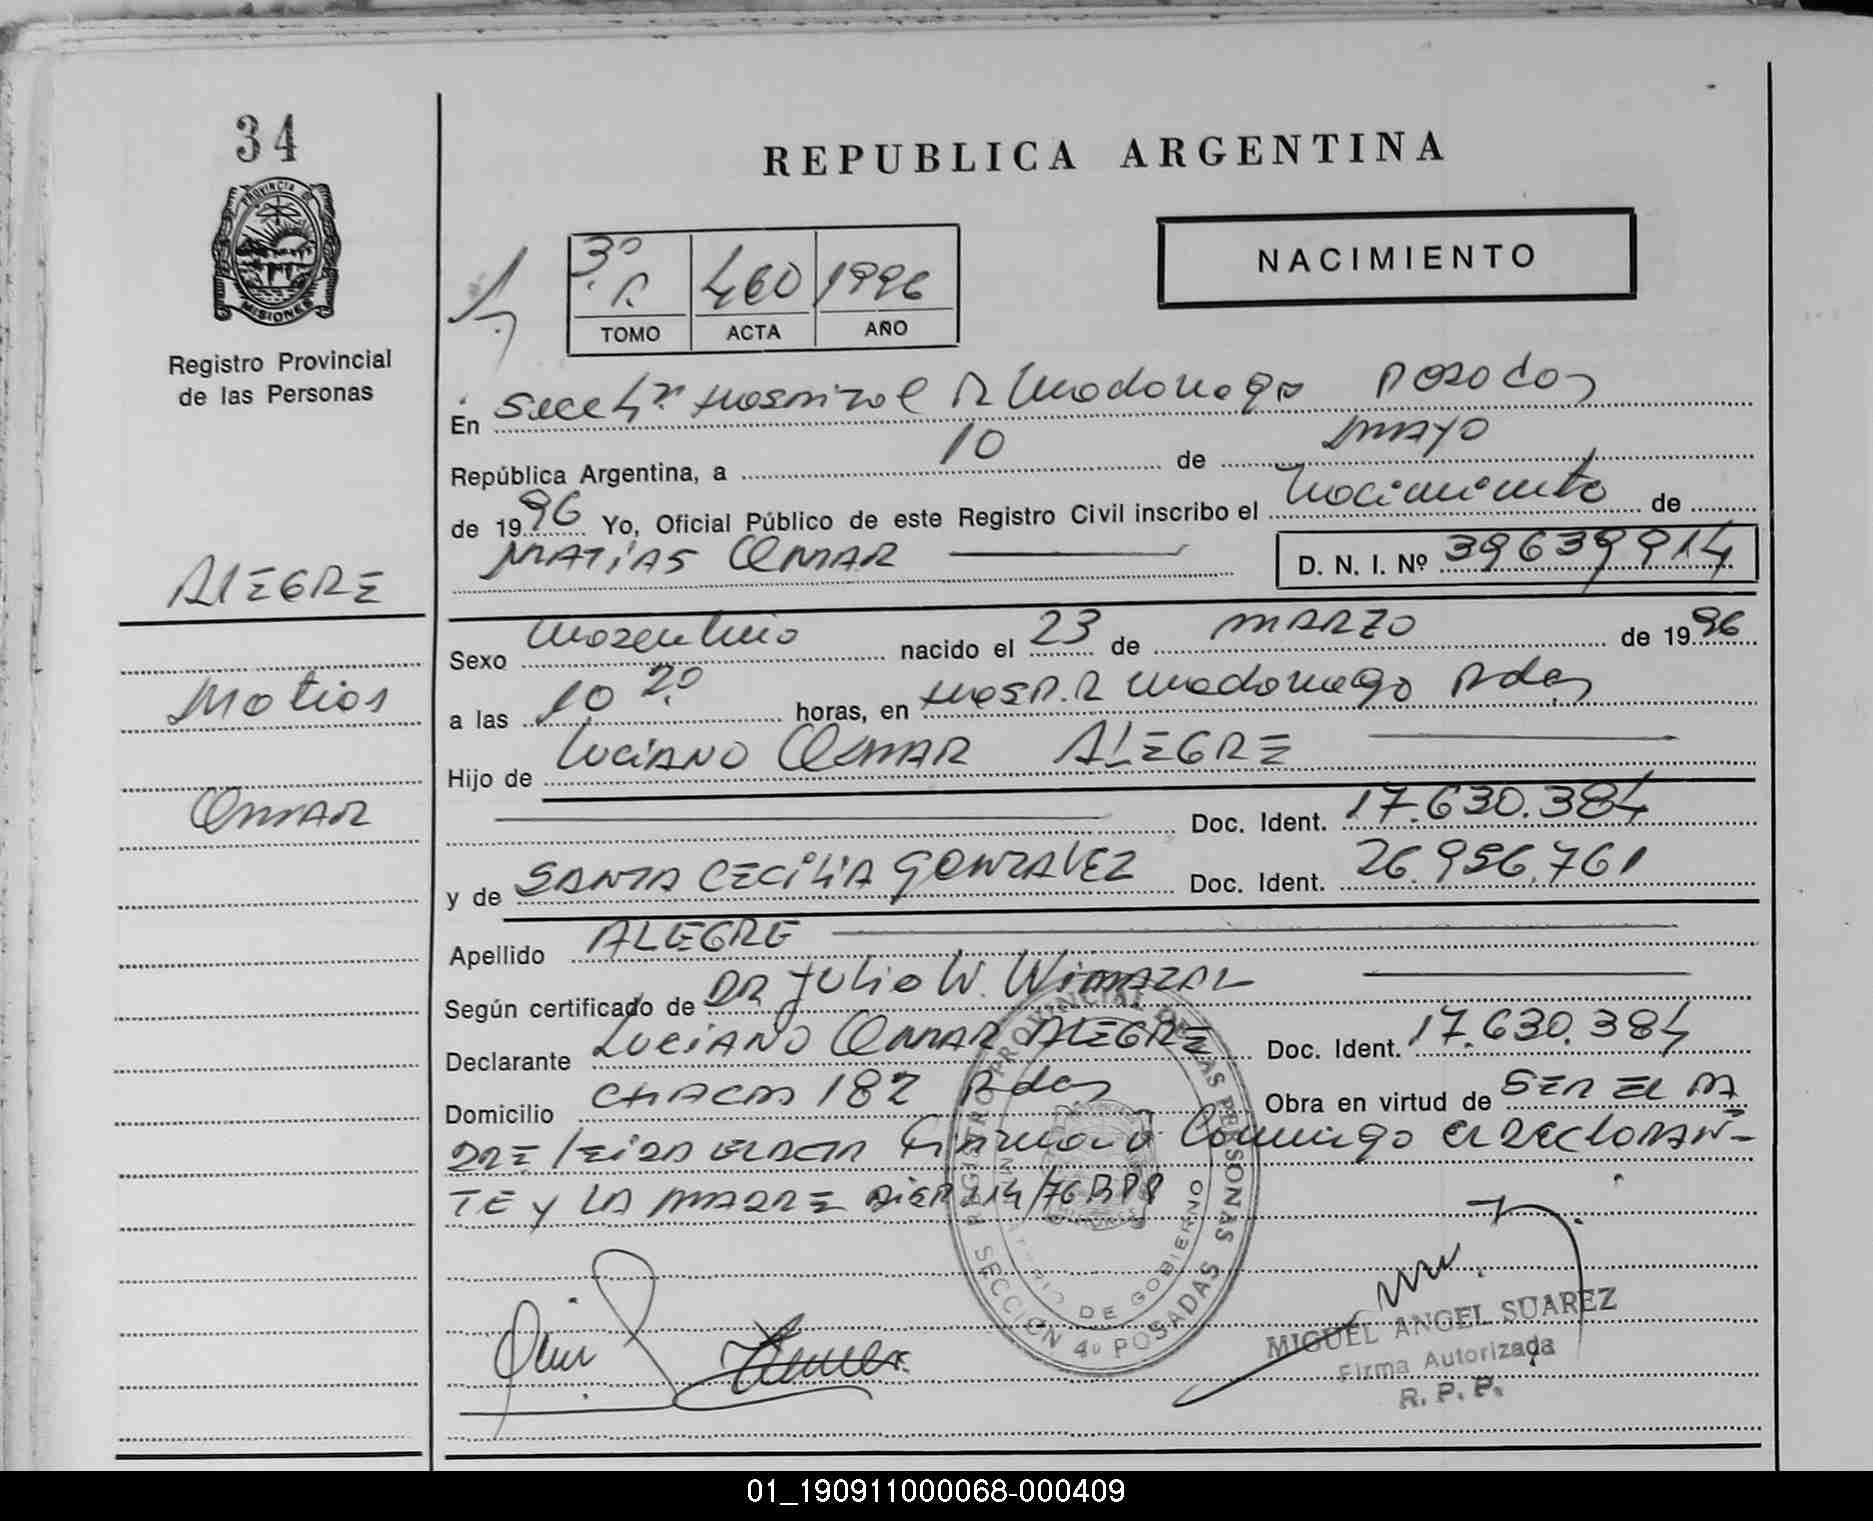 34
PROVINCIA DE
MISIONES
Registro Provincial
de las Personas
REPUBLICA ARGENTINA
NACIMIENTO
3º 460 1996
TOMO ACTA AÑO
En Secc 4ª Hospital R Madariaga Posadas
República Argentina, a 10 de MAYO
de 1996 Yo, Oficial Público de este Registro Civil inscribo el Nacimiento de
MATIAS OMAR
D. N. I. Nº 39639914
ALEGRE
Matias
OMAR
Sexo Masculino nacido el 23 de MARZO de 1996
a las 10 20 horas, en Hosp. R Madariaga Pdas
Hijo de LUCIANO OMAR ALEGRE
Doc. Ident. 17.630.384
y de SANTA CECILIA GONZALEZ Doc. Ident. 26.956.761
Apellido ALEGRE
Según certificado de DR Julio W.
Declarante LUCIANO OMAR ALEGRE Doc. Ident. 17.630.384
Domicilio CHACAS 182 Pdas Obra en virtud de SER EL PA
DRE LEIDA EL ACTA Firman Conmigo el DECLARAN-
TE Y LA MADRE 214/76 RPP
REGISTRO PROVINCIAL DE LAS PERSONAS
MINISTERIO DE GOBIERNO
SECCION 4º POSADAS
MIGUEL ANGEL SUAREZ
Firma Autorizada
R. P. P.
01_190911000068-000409